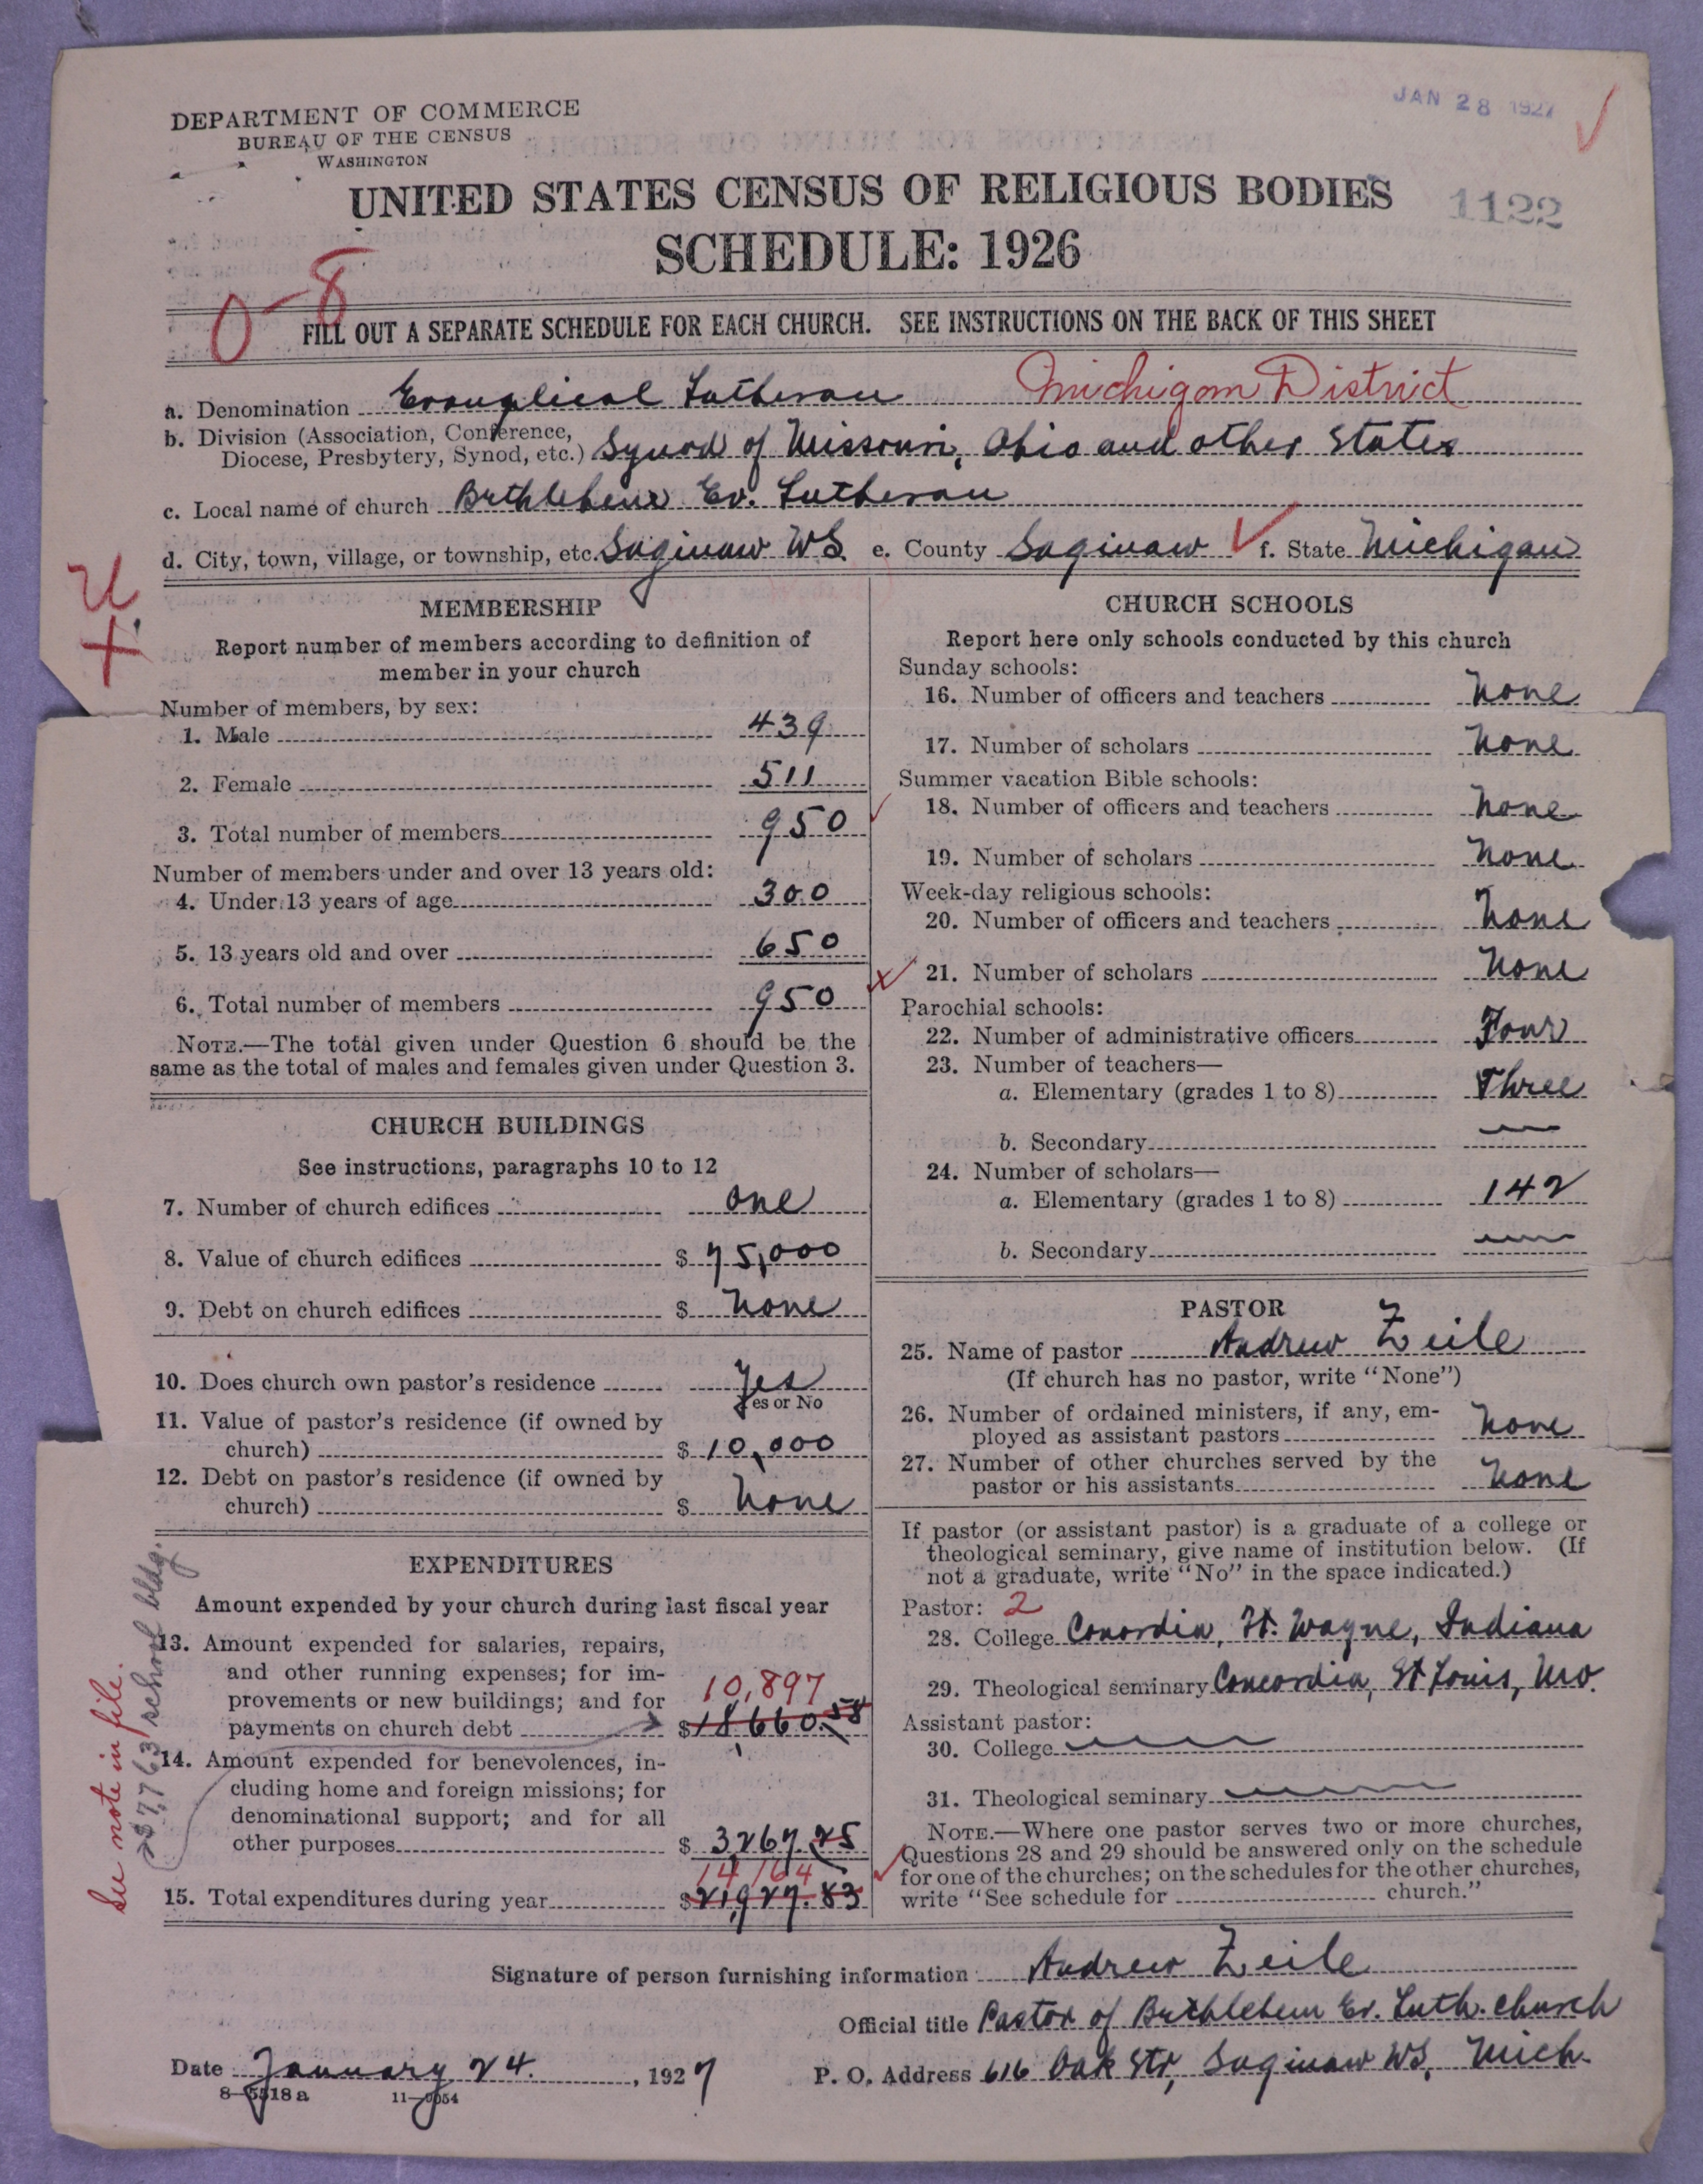 JAN 28 1927
DEPARTMENT OF COMMERCE
BUREAU OF THE CENSUS
WASHINGTON
UNITED STATES CENSUS OF RELIGIOUS BODIES
1122
SCHEDULE: 1926
0-8
FILL OUT A SEPARATE SCHEDULE FOR EACH CHURCH. SEE INSTRUCTIONS ON THE BACK OF THIS SHEET
a. Denomination Evangelical Lutheran Michigan District
b. Division (Association, Conference,
Diocese, Presbytery, Synod, etc.) Synod of Missouri, Ohio and other States
c. Local name of church Bethlehem Ev. Lutheran
d. City, town, village, or township, etc. Saginaw WS. e. County Saginaw f. State Michigan
MEMBERSHIP
Report number of members according to definition of
member in your church
Number of members, by sex:
1. Male 439
2. Female 511
3. Total number of members 950
Number of members under and over 13 years old:
4. Under 13 years of age 300
5. 13 years old and over 650
6. Total number of members 950
NOTE.—The total given under Question 6 should be the
same as the total of males and females given under Question 3.
CHURCH BUILDINGS
See instructions, paragraphs 10 to 12
7. Number of church edifices one
8. Value of church edifices $ 75,000
9. Debt on church edifices $ None
10. Does church own pastor's residence Yes
Yes or No
11. Value of pastor's residence (if owned by
church) $ 10,000
12. Debt on pastor's residence (if owned by
church) $ None
EXPENDITURES
Amount expended by your church during last fiscal year
13. Amount expended for salaries, repairs,
and other running expenses; for im-
provements or new buildings; and for 10,897
payments on church debt $ 18,660.58
14. Amount expended for benevolences, in-
cluding home and foreign missions; for
denominational support; and for all
other purposes $ 3,267.25
14 164
15. Total expenditures during year $ 21,927.83
See note in file.
7763 school bldg.
CHURCH SCHOOLS
Report here only schools conducted by this church
Sunday schools:
16. Number of officers and teachers None
17. Number of scholars None
Summer vacation Bible schools:
18. Number of officers and teachers None
19. Number of scholars None
Week-day religious schools:
20. Number of officers and teachers None
21. Number of scholars None
Parochial schools:
22. Number of administrative officers Four
23. Number of teachers—
a. Elementary (grades 1 to 8) Three
b. Secondary
24. Number of scholars—
a. Elementary (grades 1 to 8) 142
b. Secondary
PASTOR
25. Name of pastor Andrew Zeile
(If church has no pastor, write "None")
26. Number of ordained ministers, if any, em-
ployed as assistant pastors None
27. Number of other churches served by the
pastor or his assistants None
If pastor (or assistant pastor) is a graduate of a college or
theological seminary, give name of institution below. (If
not a graduate, write "No" in the space indicated.)
Pastor: 2
28. College Concordia, Ft. Wayne, Indiana
29. Theological seminary Concordia, St Louis, Mo.
Assistant pastor:
30. College
31. Theological seminary
NOTE.—Where one pastor serves two or more churches,
Questions 28 and 29 should be answered only on the schedule
for one of the churches; on the schedules for the other churches,
write "See schedule for church."
Signature of person furnishing information Andrew Zeile
Official title Pastor of Bethlehem Ev. Luth. Church
Date January 24. , 1927 P. O. Address 616 Oak Str, Saginaw WS, Mich.
8—5518 a 11—9054